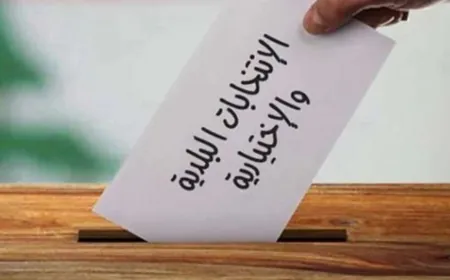 الانتخابات البلدية
والاختيارية